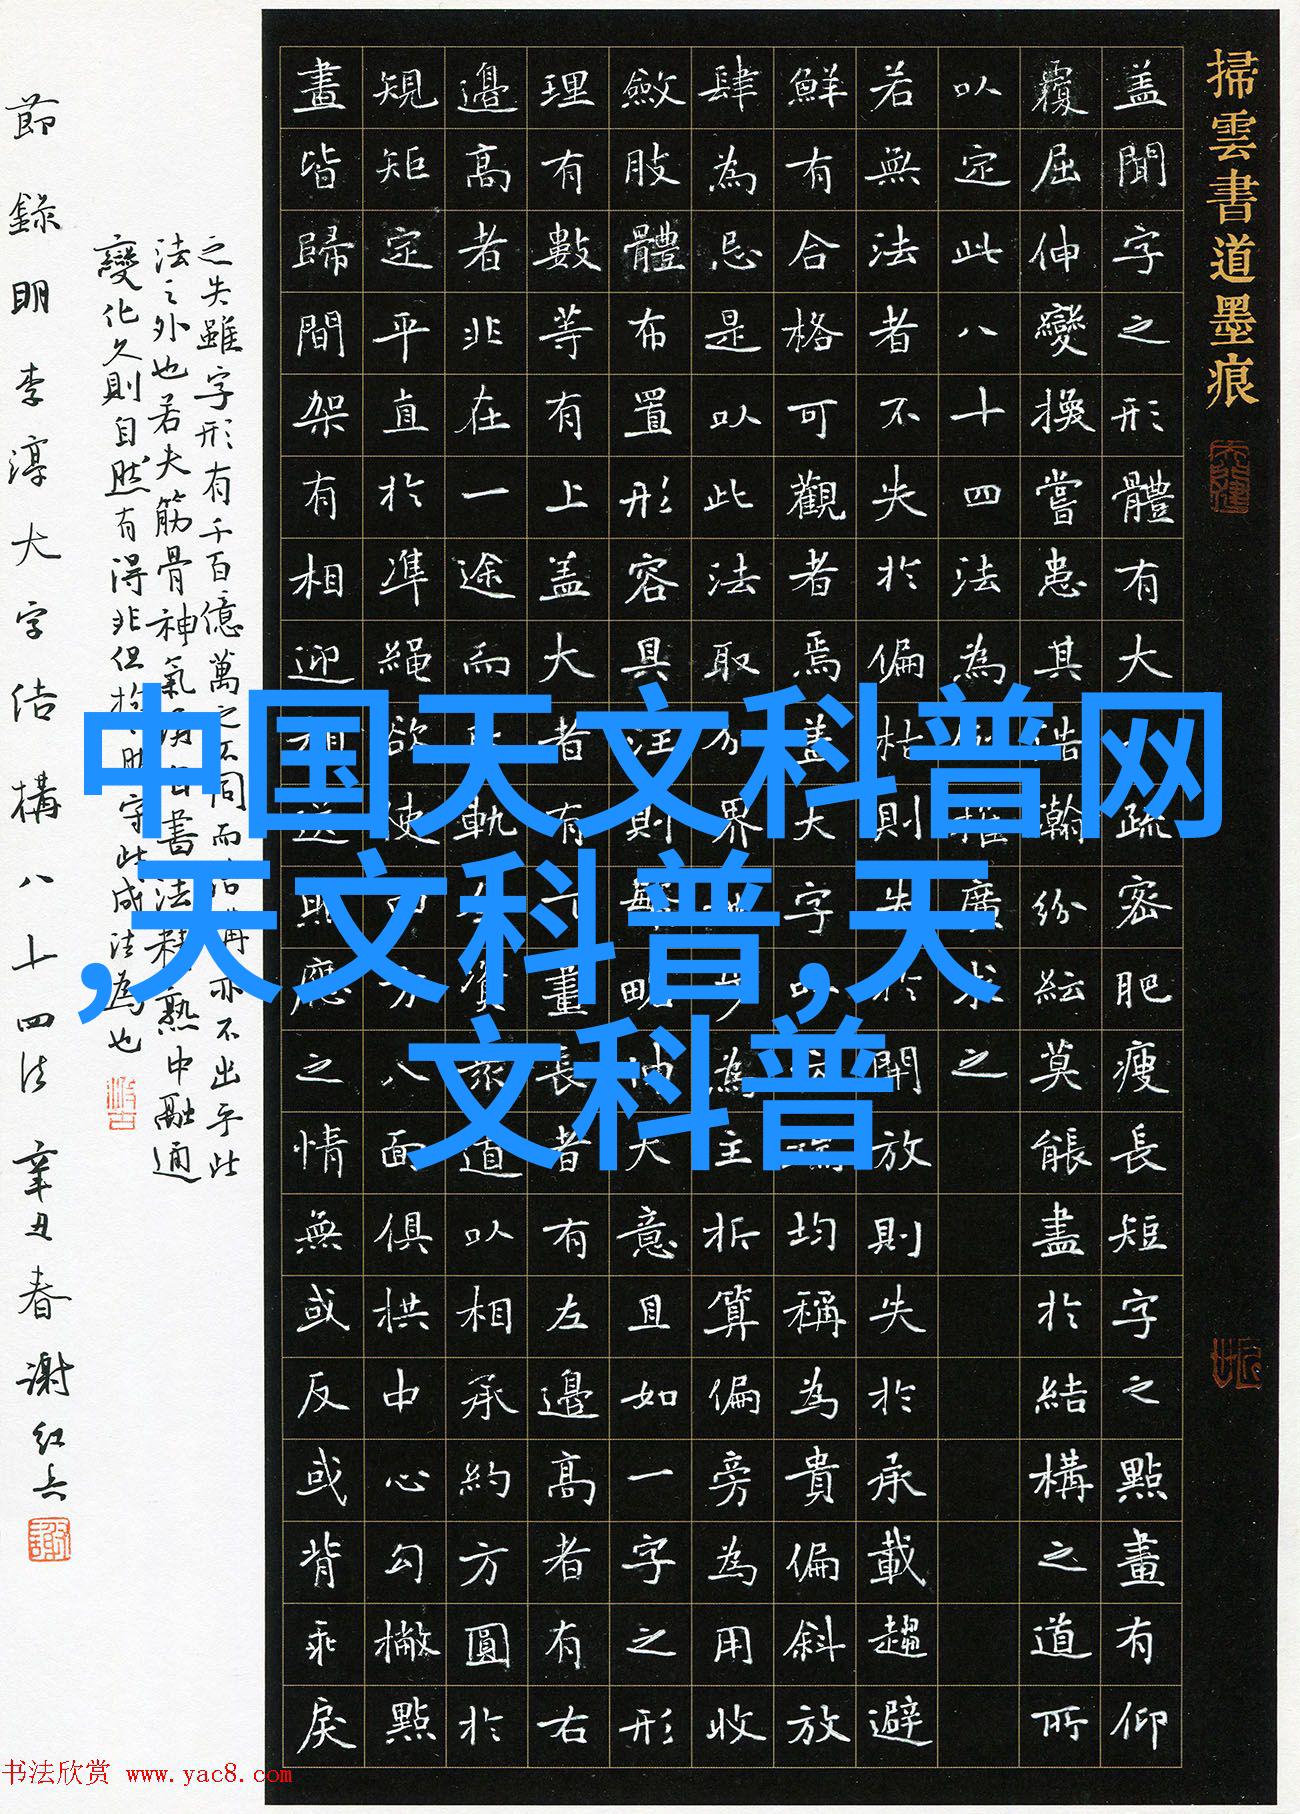 掃雲書道墨痕
盖聞字之形體有大疏密肥瘦長短字之點畫有仰
覆屈伸變換嘗患其浩瀚紛紜莫能盡於結構之道所
以定此八十四法為例推廣求之
若無法者不失於偏枯則失於開放則失於承載趨避
鮮有合格可觀者焉盖大字以端均稱為貴偏斜放
肆為忌是以此法取分界地步為主折算偏旁為用收
斂肢體布置形容具注則繁略伸大意且如一字之形
理有數等有上盖大者有下畫長者有左邊高者有右
邊高者非在一途而取軌資眾道以相承約方圓於
規矩定平直於準繩欲使四方八面俱拱中心勾撇點
畫皆歸間架有相迎相送照應之情無或反或背乖戾
之失雖字形有千百億萬之不同而結構亦不出乎此
法之外也若夫筋骨神氣須自書法精熟中融通
變化久則自然有得非但拘守此成法為也
節錄明李淳大字结構八十四法 辛丑春 谢红兵
中国天文科普网
,天文科普,天
文科普
书法欣赏 www.yac8.com